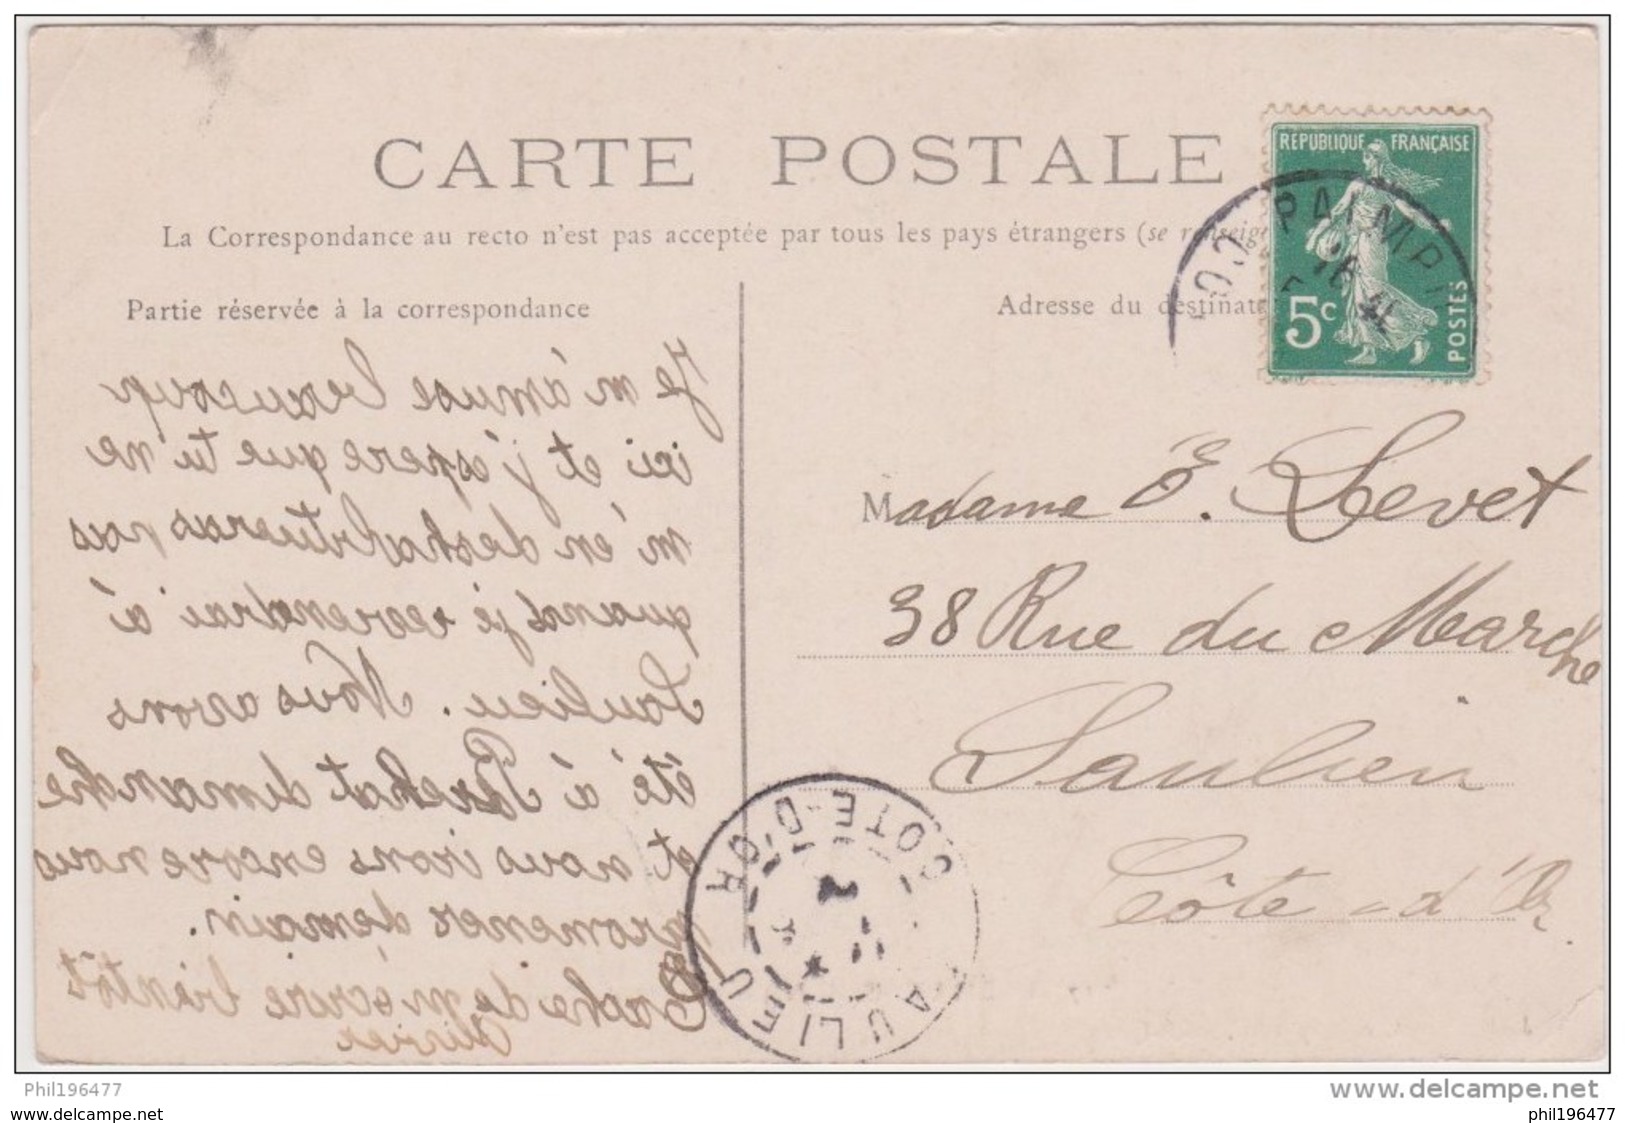 CARTE POSTALE
La Correspondance au recto n'est pas acceptée par tous les pays étrangers (se renseigne
Partie réservée à la correspondance
Adresse du destinat
RÉPUBLIQUE FRANÇAISE
5c
POSTES
PAIMP
Je m'amuse beaucoup
ici et j'espere que tu ne
m'en deshabitueras nous
quand je reviendrai à
Saulieu. Nous avons
été à Brehat dimanche
et nous irons encore nous
promener demain.
Tache de m'écrire bientôt
Olivier
Madame E. Levet
38 Rue du Marche
Saulieu
Côte-d'Or
SAULIEU
COTE-D'OR
Phil196477
www.delcampe.net
www.delcampe.net
phil196477